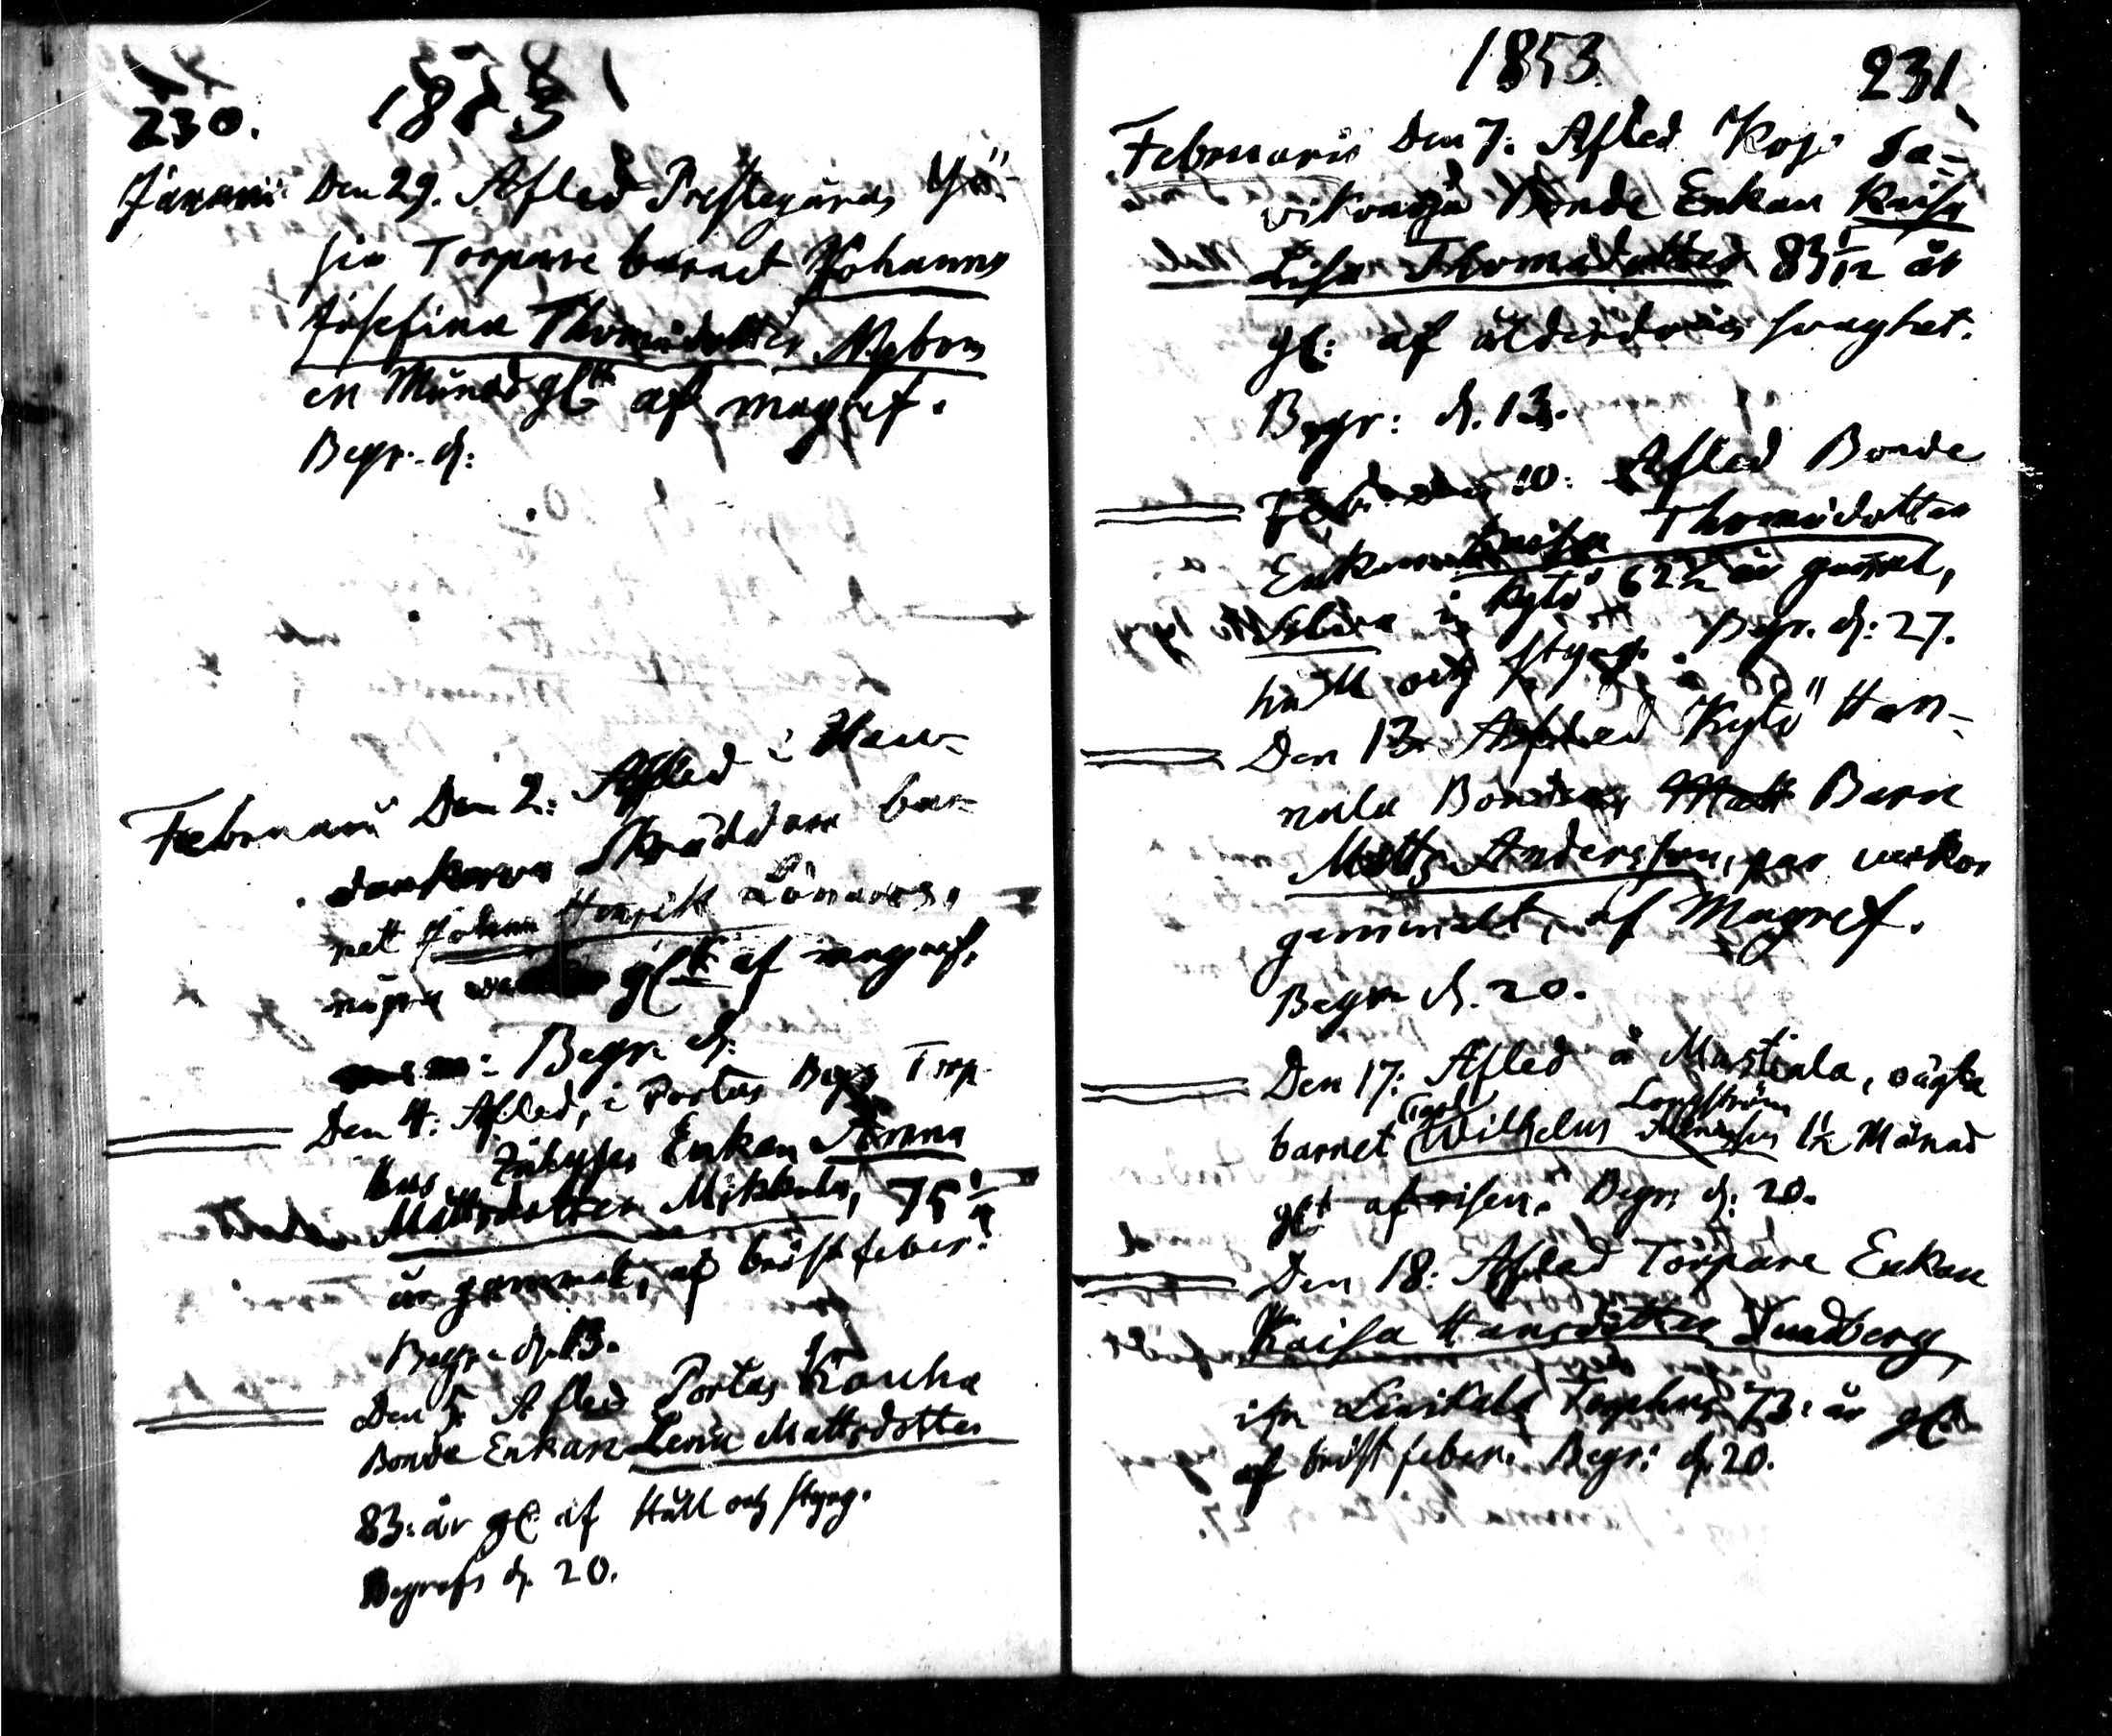 230. 1853
Januari Den 29. Afled Prestegårds
Torpare barnet Johanna
Josefina Thomasdotter Nybom
en Månad glt af magref.
Begr. d:
Februarii Den 2: Afled i
Skräddare bar-
net Johan Henrik
några glt af magref.
Begr. d:
Den 4: Afled, i Portas Torp
Inhyses Enkan Anna
Mattsdotter Mikkola, 75
år gammal, af bröstfeber.
Begr. d. 13.
Den 5. Afled Portas Kouha
Bonde Enkan Lena Mattsdotter
83: år gl af Håll och styng.
Begrofs d. 20.
1853. 231.
Februarii Den 7. Afled
Bonde Enkan Kaisa
Lisa Thomasdotter 83 1/12 år
gl: af ålderdoms svaghet.
Begr: d. 13.
10: Afled Bonde
Enkan Kaisa Thomasdotter
i Kytö 62 1/2 år gamal,
håll och styng. Begr. d: 27.
Den 13. Afled Kytö Han-
nula Bondens Matt Barn
Matts Andersson, par veckor
gammalt, af Magref.
Begr. d. 20.
Den 17: Afled å Mustiala, oägta
Carl Longström
barnet Wilhelm 1 1/2 Månad
glt af risen. Begr: d: 20.
Den 18: Afled Torpare Enkan
Kaisa Hansdotter Lundberg,
73: år gl
af bröstfeber. Begr: d. 20.